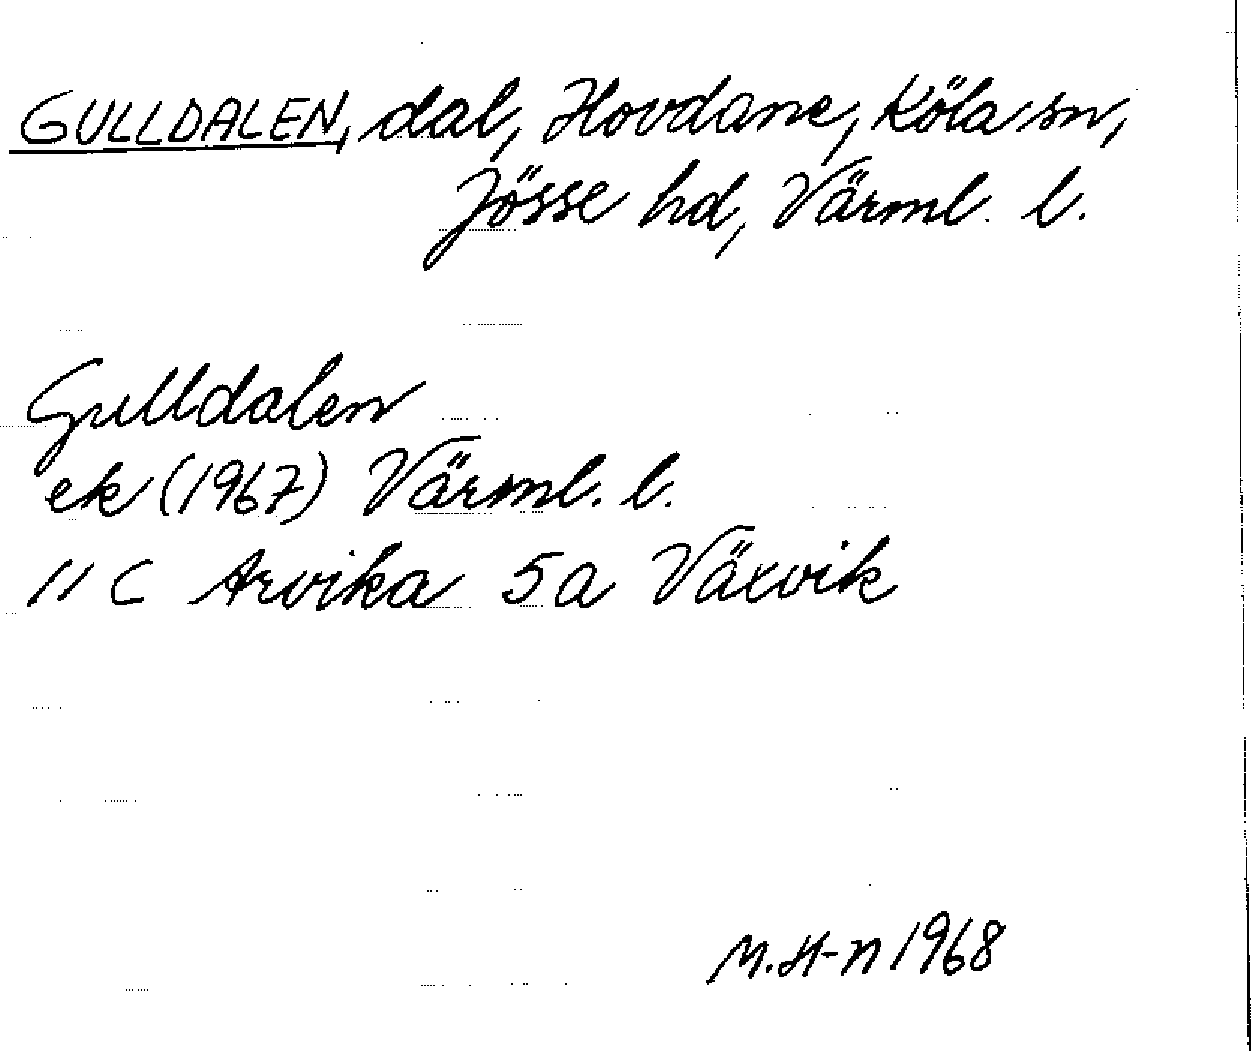 GULLDALEN, dal, Hovdane, Köla sn,
Jösse hd, Värml. l.
Gulldalen
ek (1967) Värml. l.
11 C Arvika 5a Växvik
M.H-n 1968